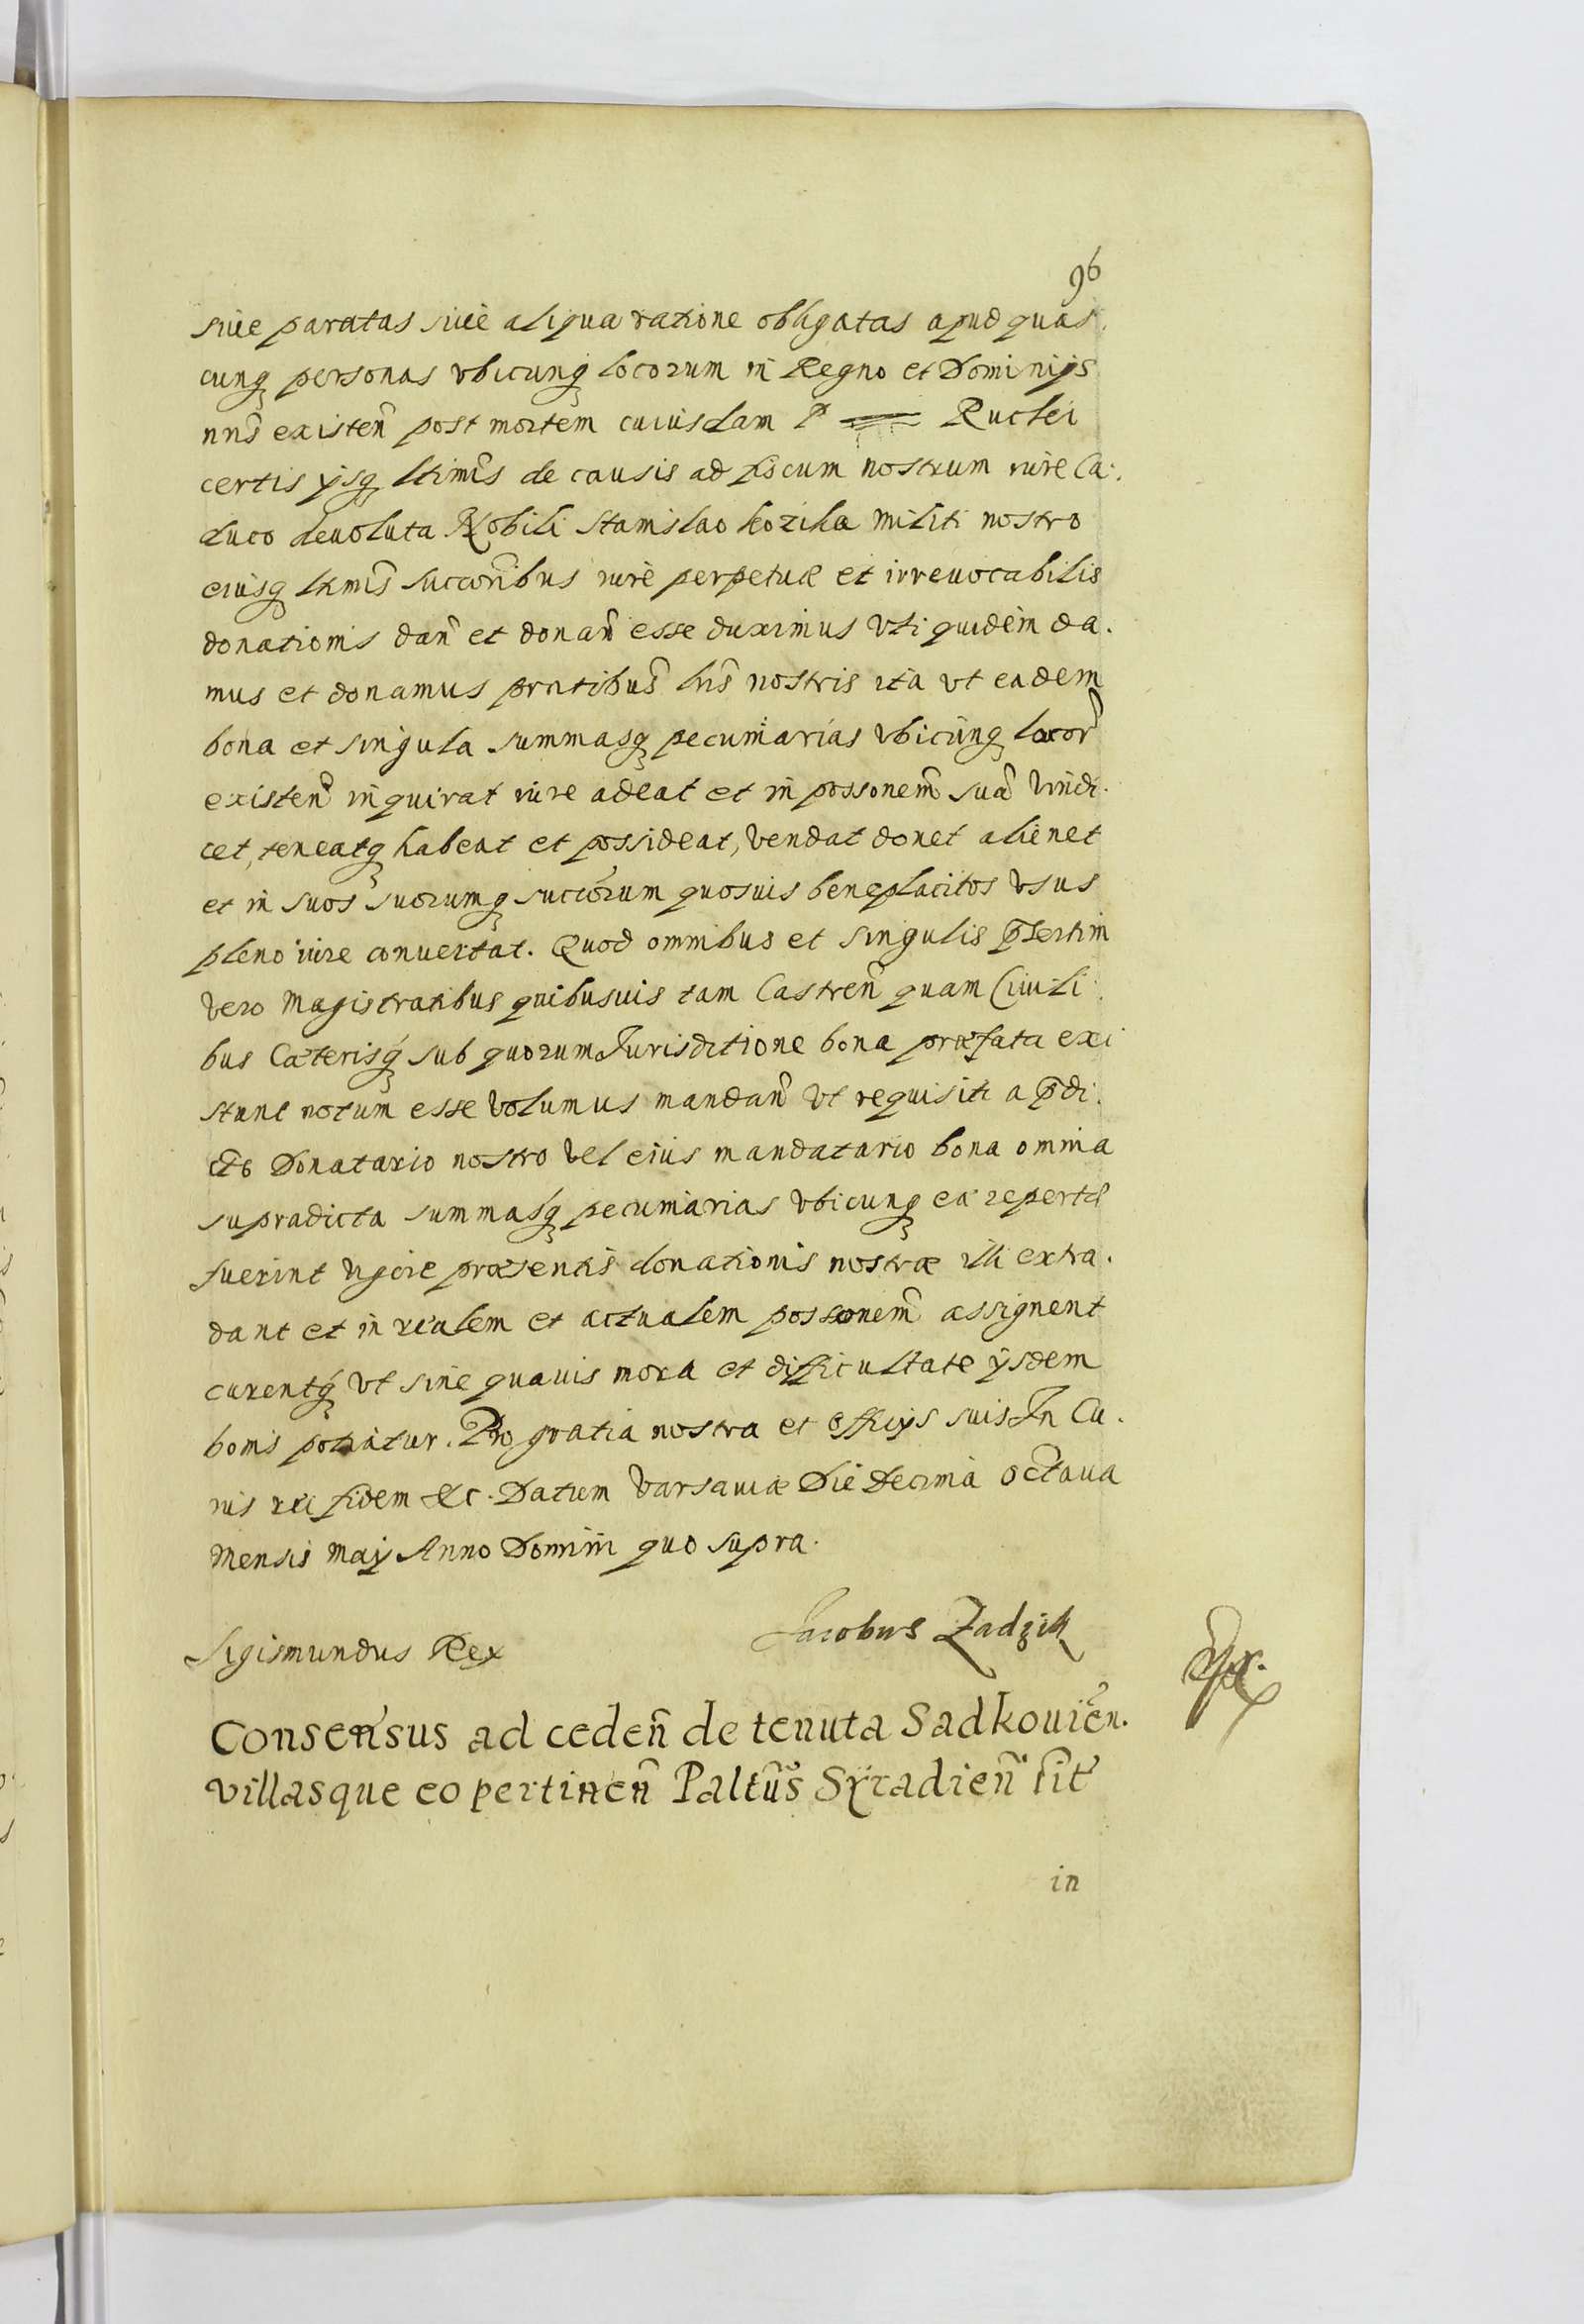 96
siue paratas siue aliqua ratione obligatas apud quas
cunq personas vbicunq locorum in Regno et Dominijs
nris existen post mortem cuiusdam P Ruckei
certis ijsq ltimis de causis ad fiscum nostrum iure Ca.
duco deuoluta Nobili Stanislao Kozika Militi nostro
eiusq ltimis succoribus iure perpetuae et irreuocabilis
donationis dan et donan esse duximus Vti quidem da.
mus et donamus pntibus lris nostris ita vt eadem
bona et singula summasq pecuniarias vbicunq locor
existen inquirat iure adeat et in possonem sua vindi.
cet, teneatq habeat et possideat, vendat donet alienet
et in suos suorumq succorum quosuis beneplacitos vsus
pleno iure conuertat. Quod omnibus et singulis psertim
Vero Magistratibus quibusuis tam Castren quam Ciuili
bus Caeterisq sub quorum Jurisditione bona praefata exi
stunt notum esse volumus mandan Vt requisiti a pdi.
cto Donatario nostro vel eius mandatario bona omnia
supradicta summasq pecuniarias vbicunq ea reperta
fuerint vigore praesentis donationis nostrae illi extra.
dant et in realem et actualem possonem assignent
curentq Vt sine quauis mora et difficultate ijsdem
bonis potiatur. Pro gratia nostra et officijs suis In Cu.
ius rei fidem &c. Datum Varsauiae Die Decima octaua
Mensis Maij Anno Domini quo supra.
Jacobus Zadzik
Sigismundus Rex
Consensus ad ceden de tenuta Sadkouien.
villasque eo pertinen Paltus Syradien sit
in